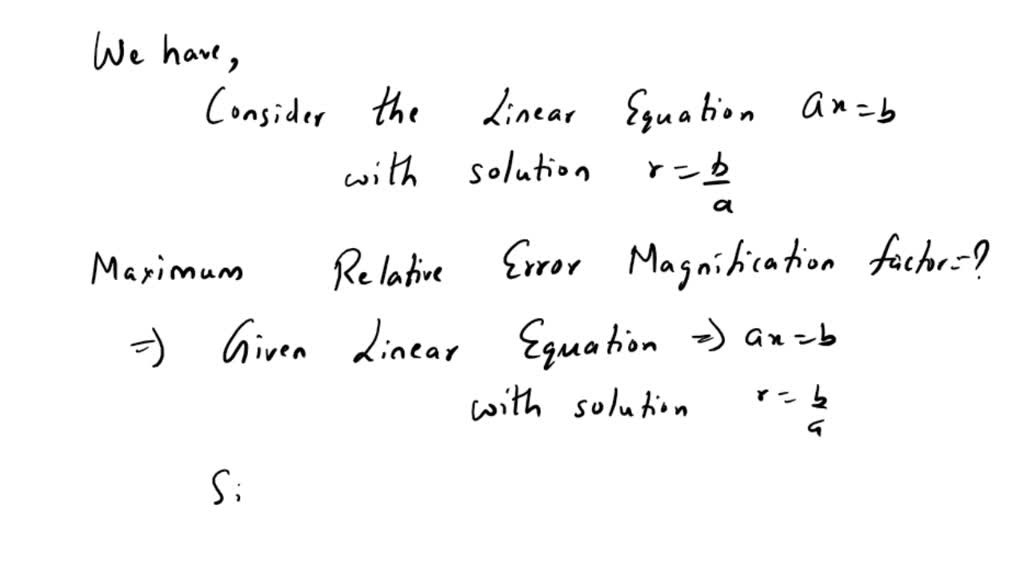 We have,
Consider the Linear Equation ax=b
with solution r=b/a
Maximum Relative Error Magnification factor=?
=) Given Linear Equation => ax=b
with solution r=b/a
Si